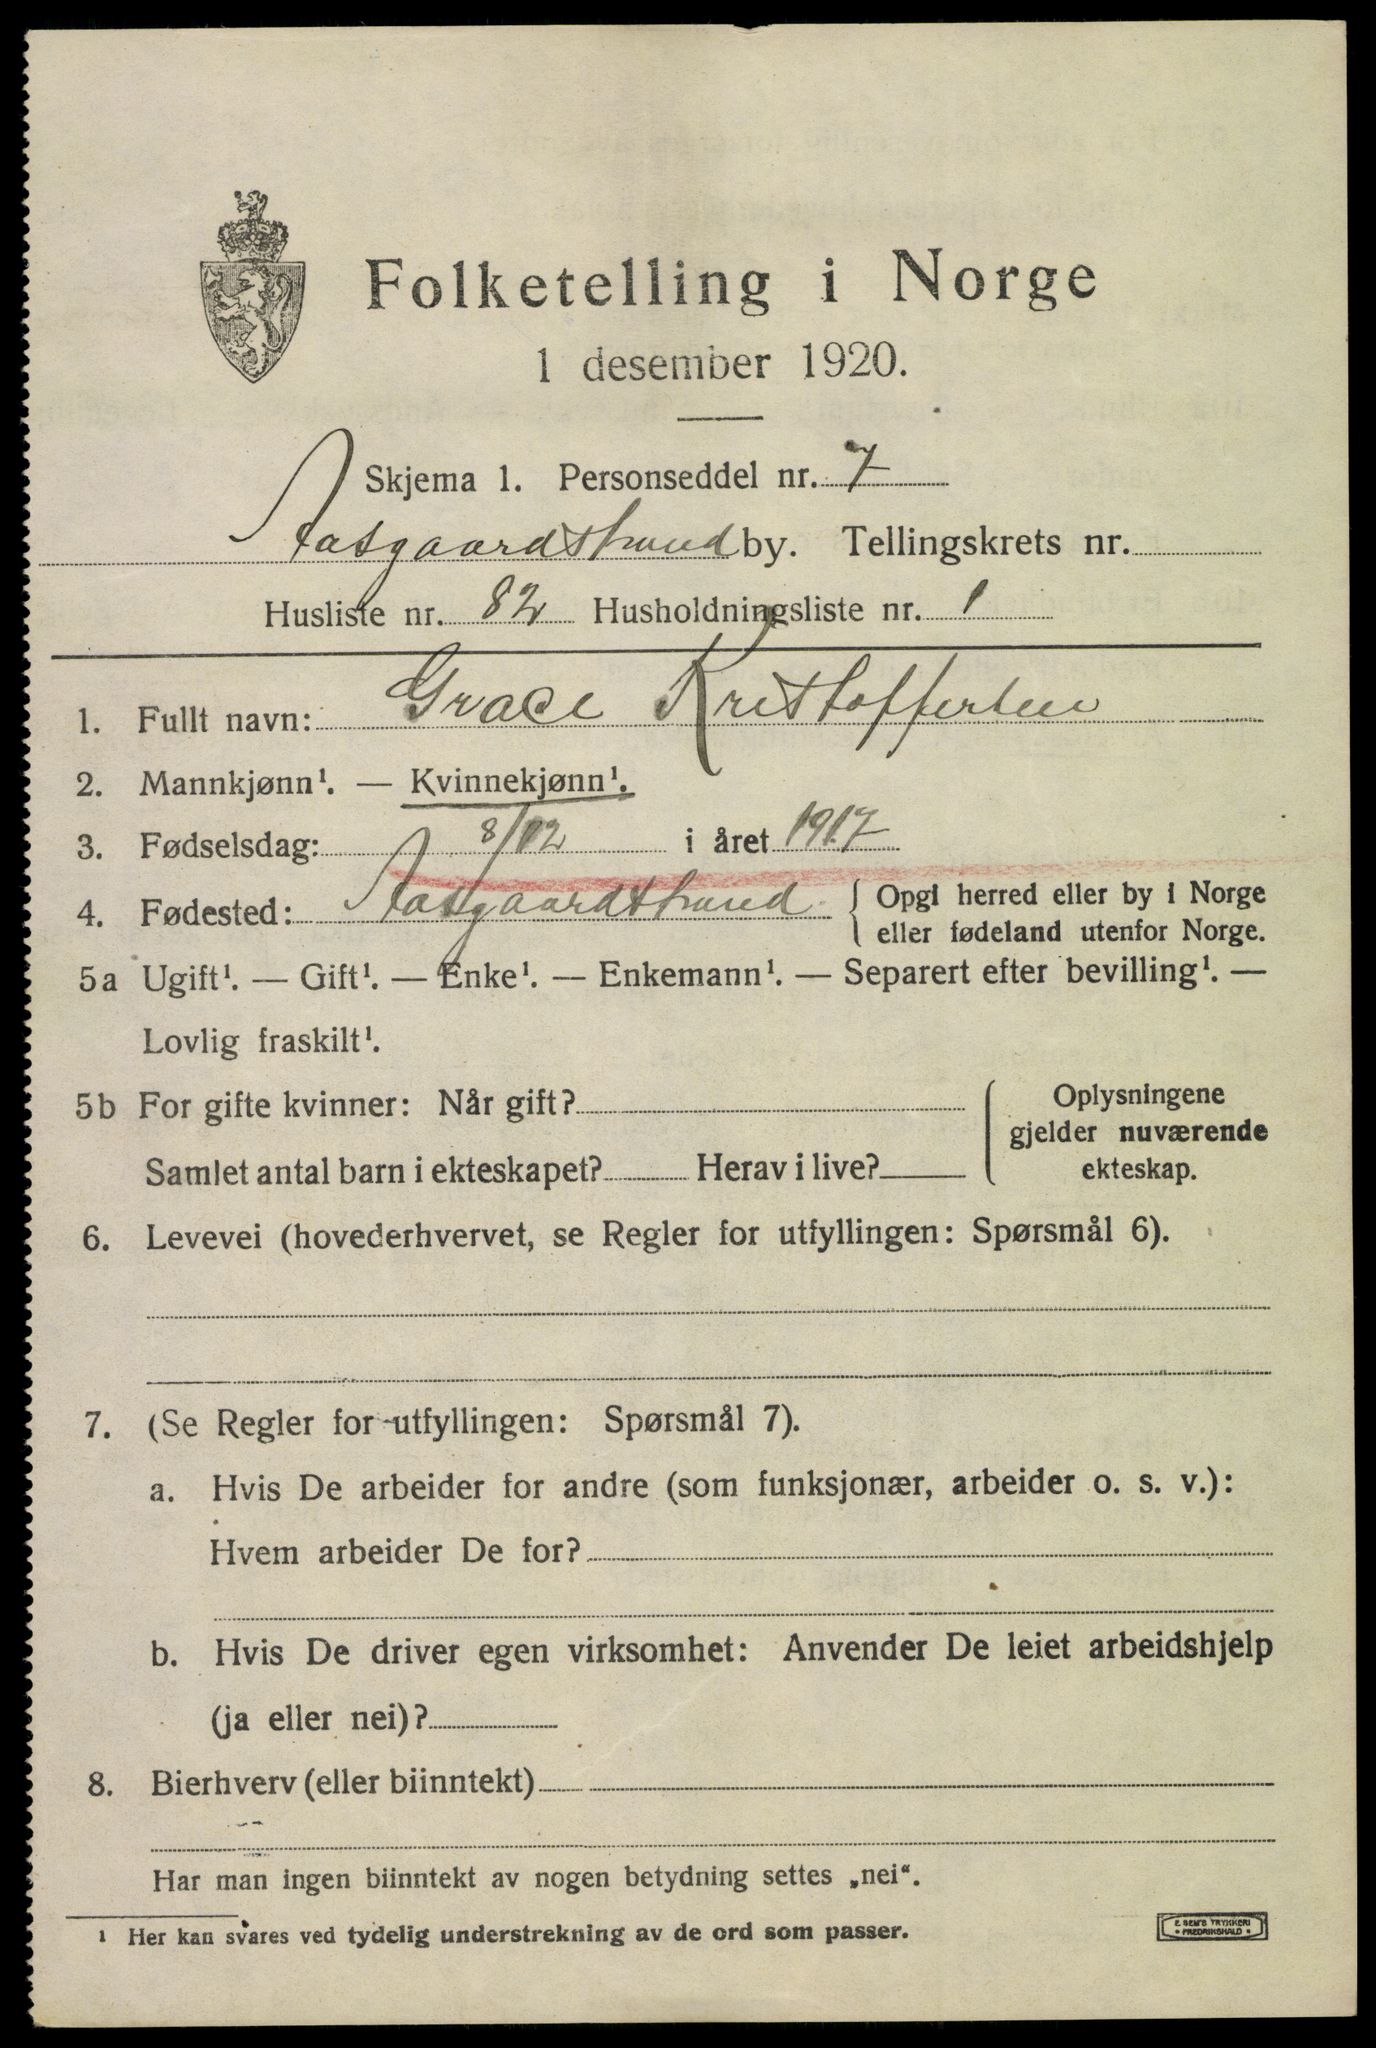 Folketelling i Norge
1 desember 1920.
Skjema 1. Personseddel nr. 7
Aasgaardstrand by. Tellingskrets nr.
Husliste nr. 82 Husholdningsliste nr. 1
1. Fullt navn: Grace Kristoffersen
2. Mannkjønn¹. — Kvinnekjønn¹.
3. Fødselsdag: 8/12 i året 1917
4. Fødested: Aasgaardstrand { Opgi herred eller by i Norge
eller fødeland utenfor Norge.
5a Ugift¹. — Gift¹. — Enke¹. — Enkemann¹. — Separert efter bevilling¹. —
Lovlig fraskilt¹.
5b For gifte kvinner: Når gift?
Samlet antal barn i ekteskapet? Herav i live?
Oplysningene
gjelder nuværende
ekteskap.
6. Levevei (hovederhvervet, se Regler for utfyllingen: Spørsmål 6).
7. (Se Regler for utfyllingen: Spørsmål 7).
a. Hvis De arbeider for andre (som funksjonær, arbeider o. s. v.):
Hvem arbeider De for?
b. Hvis De driver egen virksomhet: Anvender De leiet arbeidshjelp
(ja eller nei)?
8. Bierhverv (eller biinntekt)
Har man ingen biinntekt av nogen betydning settes „nei“.
¹ Her kan svares ved tydelig understrekning av de ord som passer.
E SEM'S TRYKKERI
• FREDRIKSHALD •